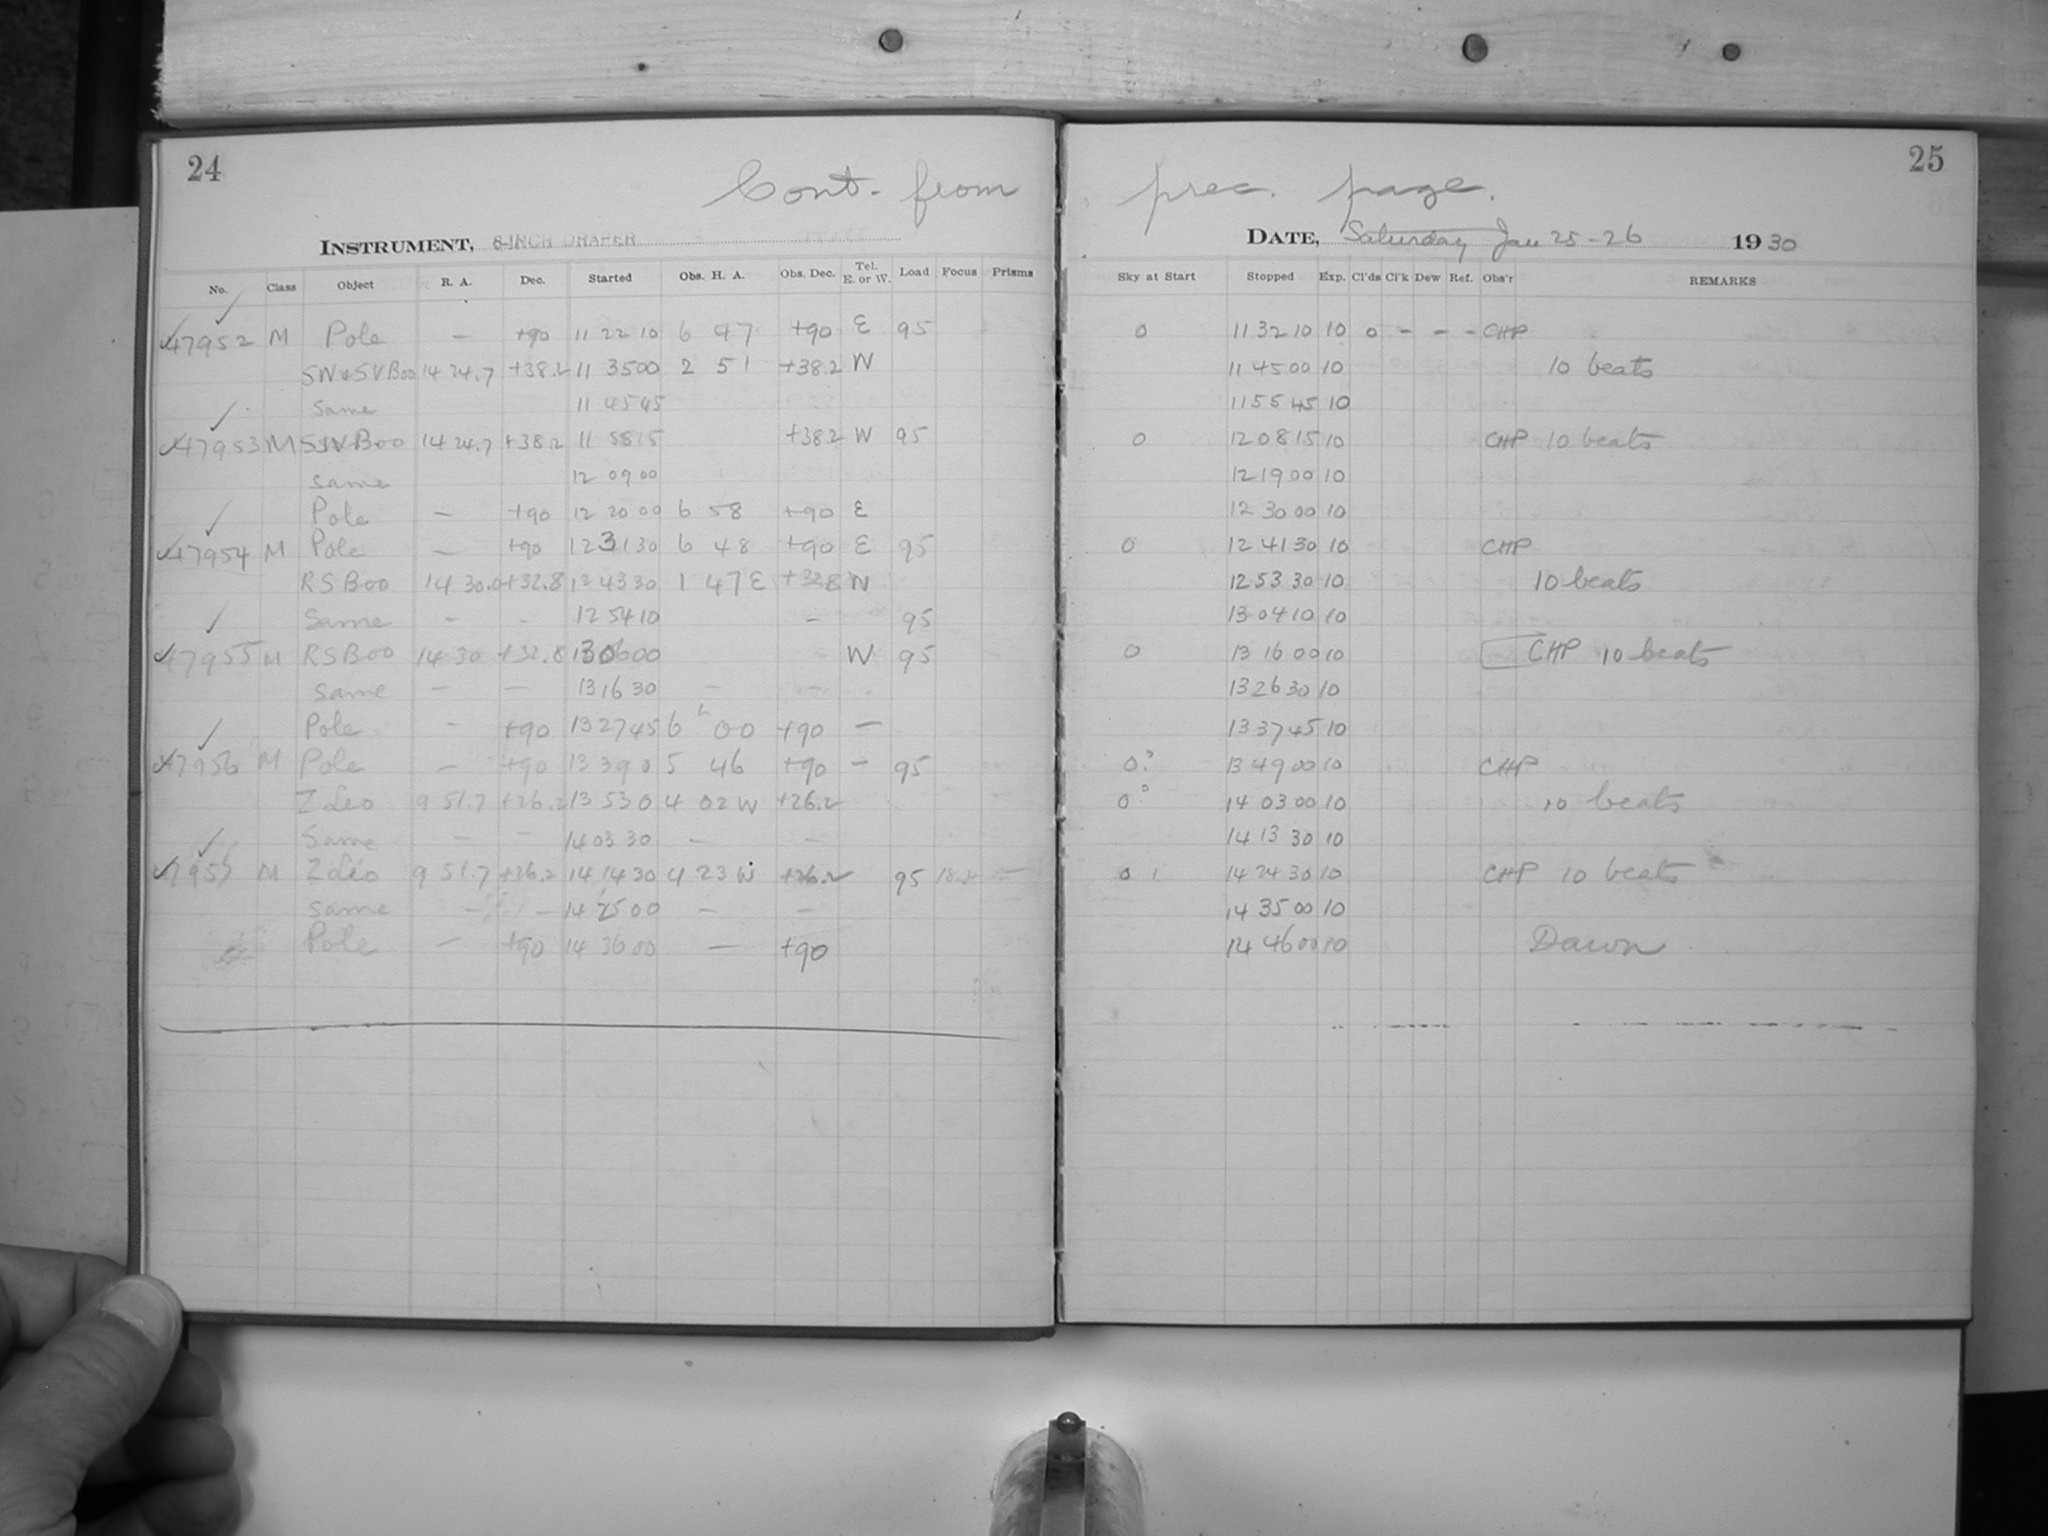 24
Cont. from
INSTRUMENT, 8-INCH DRAPER
No. Class Object R. A. Dec. Started Obs. H. A. Obs. Dec. Tel. E. or W. Load Focus Prisms
47952 M Pole — +90 11 22 10 6 47 +90 E 95
SW & SV Boo 14 24.7 +38.2 11 35 00 2 51 +38.2 W
Same 11 45 45
47953 M Boo 14 24.7 +38.2 11 58 15 +38.2 W 95
Same 12 09 00
Pole — +90 12 20 00 6 58 +90 E
47954 M Pole — +90 12 31 30 6 48 +90 E 95
RS Boo 14 30.0 +32.8 12 43 30 1 47 E +32.8 W
Same - - 12 54 10 — 95
47955 M RS Boo 14 30 +32.8 13 06 00 W 95
Same — — 13 16 30 — —
Pole - +90 13 27 45 6 h 00 +90 —
47956 M Pole — +90 13 39 0 5 46 +90 — 95
Z Leo 9 51.7 +26.2 13 53 0 4 02 W +26.2
Same — — 14 03 30 — —
47957 M Z Leo 9 51.7 +26.2 14 14 30 4 23 W +26.2 95 —
Same — — 14 25 00 — —
Pole — +90 14 36 00 — +90
25
prec. page.
DATE, Saturday Jan 25-26 1930
Sky at Start Stopped Exp. Cl'ds Cl'k Dew Ref. Obs'r REMARKS
0 11 32 10 10 0 - - - CHP
11 45 00 10 10 beats
11 55 45 10
0 12 08 15 10 CHP 10 beats
12 19 00 10
12 30 00 10
0 12 41 30 10 CHP
12 53 30 10 10 beats
13 04 10 10
0 13 16 00 10 CHP 10 beats
13 26 30 10
13 37 45 10
0? 13 49 00 10 CHP
0? 14 03 00 10 10 beats
14 13 30 10
0 14 24 30 10 CHP 10 beats
14 35 00 10
14 46 00 10 Dawn